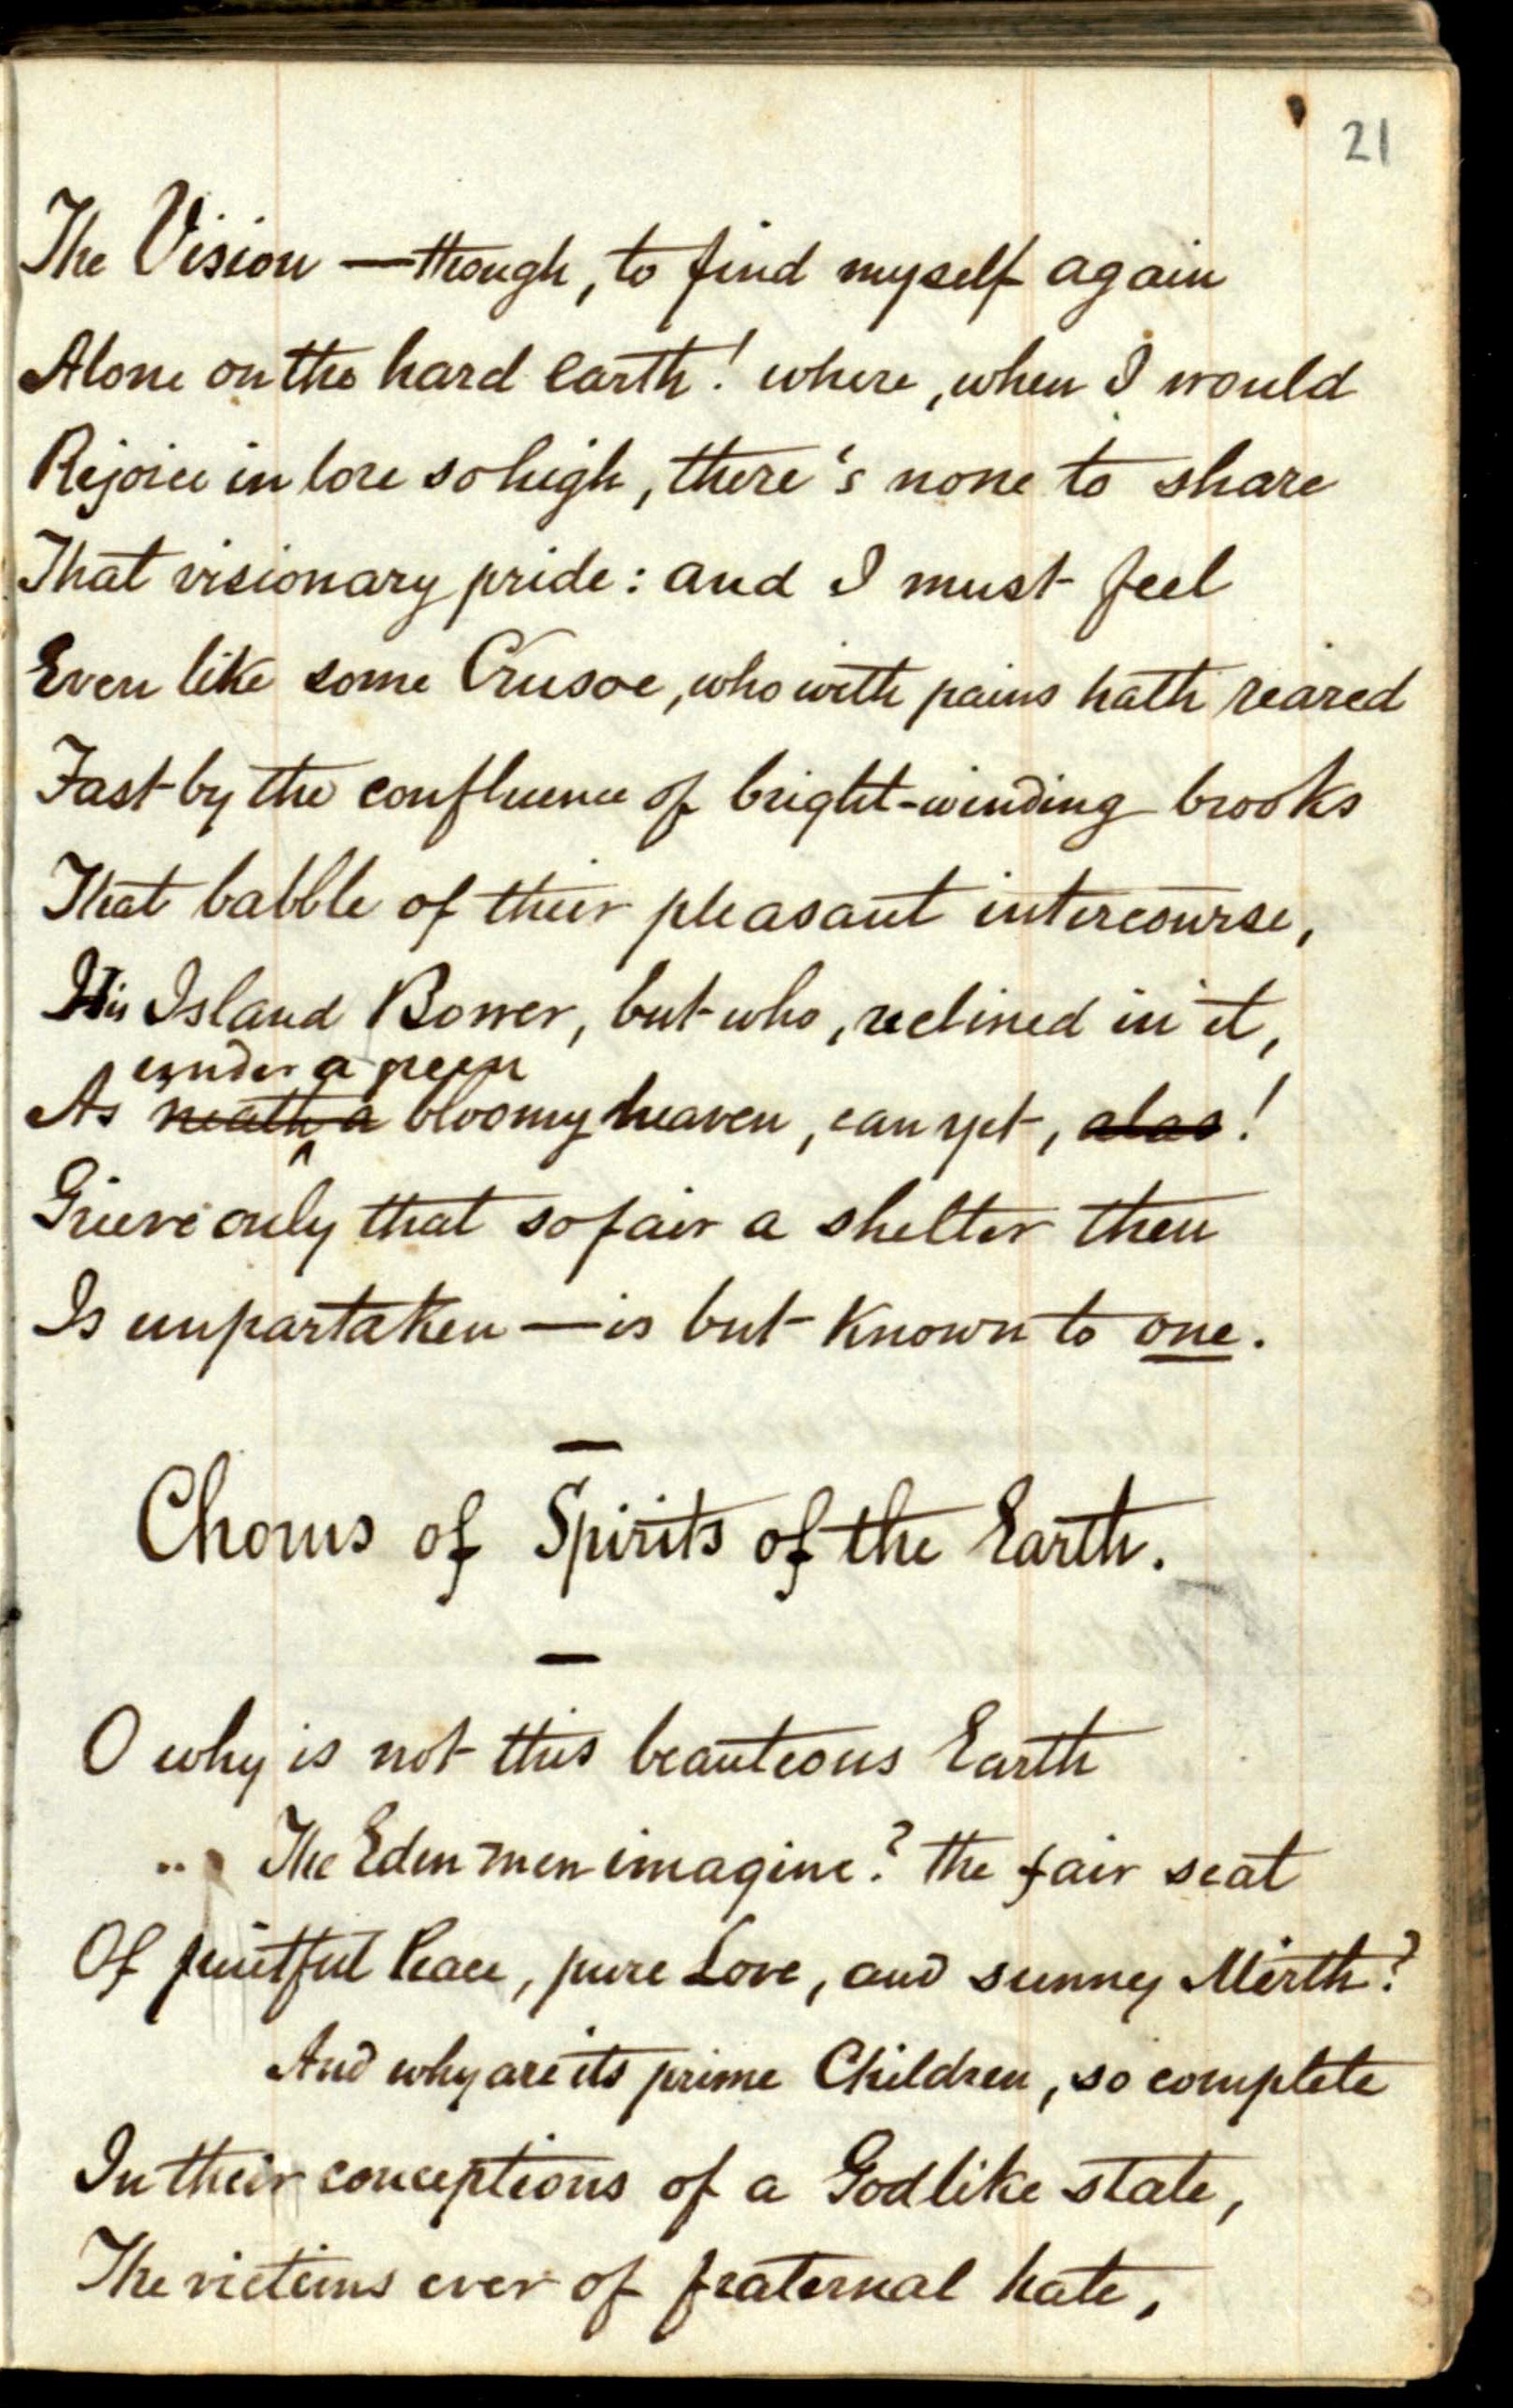 21
The Vision — though, to find myself again
Alone on the hard earth! where, when I would
Rejoice in lore so high, there's none to share
That visionary pride: and I must feel
Even like some Crusoe, who with pains hath reared
Fast by the confluence of bright-winding brooks
That babble of their pleasant intercourse,
His Island Bower, but who, reclined in it,
under a green
As neath a bloomy heaven, can yet, alas!
Grieve only that so fair a shelter then
Is unpartaken — is but known to one.
Chorus of Spirits of the Earth.
O why is not this beauteous Earth
The Eden men imagine? the fair seat
Of fruitful Peace, pure Love, and sunny Mirth?
And why are its prime Children, so complete
In their conceptions of a Godlike state,
The victims ever of fraternal hate,